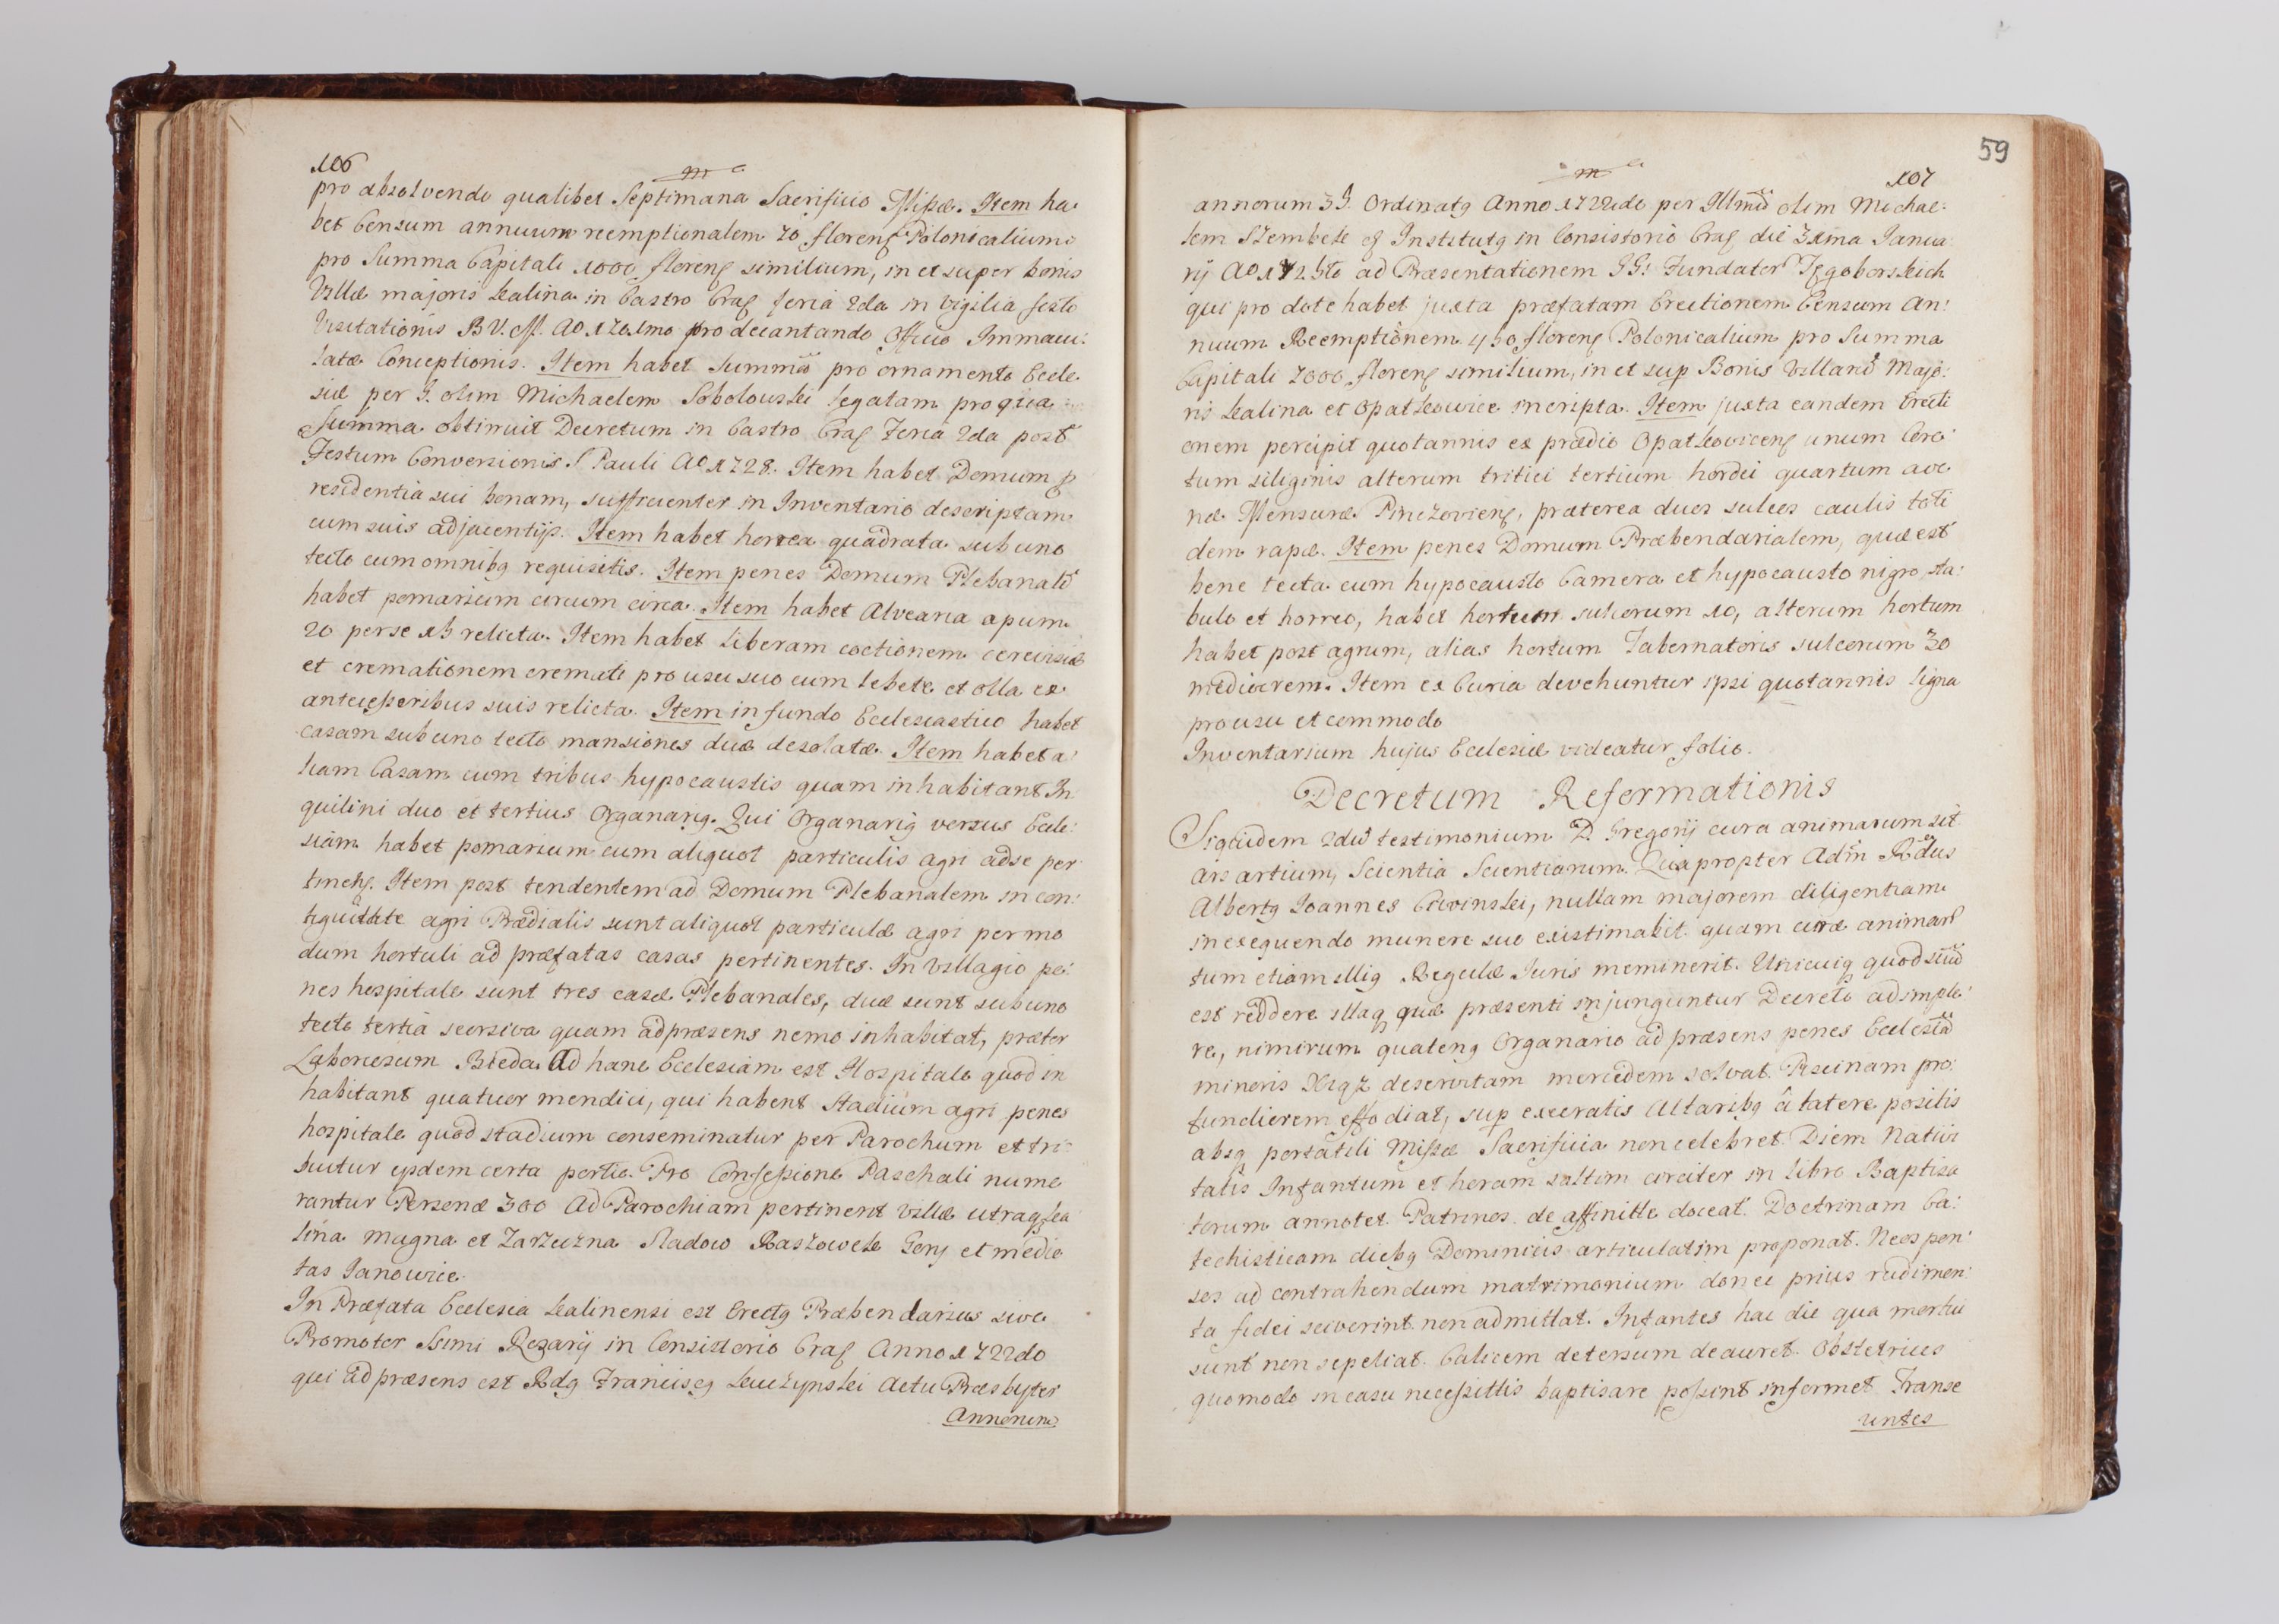 106
m
pro absolvendo qualibet Septimana Sacrificio Missæ. Item ha
bet Censum annuum reemptionalem 70 florenß Polonicalium
pro Summa Capitali 1000 florenß similium, in et super bonis
Villæ majoris Kalina in Castro Craß feria 2da in vigilia festi
Visitationis B.V.M. Ao 1701mo pro decantando Officio Immacu:
latæ Conceptionis. Item habet Summã pro ornamento Eccle
siæ per G. olim Michaelem Sobolowski legatam pro qua
Summa obtinuit Decretum in Castro Craß Feria 2da post
Festum Conversionis S. Pauli Ao 1728. Item habet Domum p
residentia sui bonam, sufficienter in Inventario descriptam
cum suis adjacentijs. Item habet horrea quadrata sub uno
tecto cum omnibq requisitis. Item penes Domum Plebanalẽ
habet pomarium circum circa. Item habet Alvearia apum
20 per se 15 relicta. Item habet liberam coctionem cerevisiæ
et cremationem cremati pro usu suo cum lebete et olla ex
antecessoribus suis relicta. Item in fundo Ecclesiastico habet
casam sub uno tecto mansiones duæ desolatæ. Item habet a
liam Casam cum tribus hypocaustis quam inhabitant In
quilini duo et tertius Organariq. Qui Organariq versus Eccle:
siam habet pomarium cum aliquot particulis agri ad se per
tinenß. Item post tendentem ad Domum Plebanalem in con:
tiguitate agri Prædialis sunt aliquot particulæ agri per mo
dum hortuli ad præfatas casas pertinentes. In Villagio pe:
nes hospitale sunt tres casæ Plebanales, duæ sunt sub uno
tecto tertia seorsiva quam ad præsens nemo inhabitat, præter
Laboriosum Bieda. Ad hanc Ecclesiam est Hospitale quod in
habitant quatuor mendici, qui habent stadium agri penes
hospitale quod stadium conseminatur per Parochum et tri
buitur ejsdem certa portio. Pro Confessione Paschali nume
rantur Personæ 300 Ad Parochiam pertinent villæ utraq Ka
lina magna et Zarzuzna Sladow Raszowek Gory et medie
tas Janowice.
In Præfata Ecclesia Kalinensi est Erectq Præbendarius sive
Promotor Ssmi Rozarij in Consistorio Craß Anno 1722do
qui ad præsens est Rdq Franciscq Leuczynski Actu Præsbyter
Annorum
59
m
107
annorum 35. Ordinatq Anno 1722do per Illmũ olim Michae:
lem Szembek et Institutq in Consistorio Craß die 31ma Janua
rij Ao 1725to ad Præsentationem GG: Fundator Zgoborskich
qui pro dote habet juxta præfatam Erectionem Censum An:
nuum Reemptionem 450 florenß Polonicalium pro Summa
Capitali 7000 florenß similium, in et sup Bonis Villarũ Majo:
ris Kalina et Opatkowice incripta. Item juxta eandem Erecti
onem percipit quotannis ex prædio Opatkovicenß unum Core
tum siliginis alterum tritici tertium hordei quartum ave
næ Mensuræ Pinczovienß, præterea duos sulcos caulis toti
dem rapæ. Item penes Domum Præbendarialem, quæ est
bene tecta cum hypocausto Camera et hypocausto nigro sta:
bulo et horreo, habet hortum sulcorum 10, alterum hortum
habet post agrum, alias hortum Tabernatoris sulcorum 30
mediocrem. Item ex Curia devehuntur ipsi quotannis ligna
pro usu et commodo
Inventarium hujus Ecclesiæ videatur folio.
Decretum Reformationis
Siquidem 2dũ testimonium D. Gregorij cura animarum sit
ars artium, Scientia Scientiarum. Quapropter Adm Rñdus
Albertq Joannes Ciwinski, nullam majorem diligentiam
in exequendo munere suo existimabit quam curæ animarũ
tum etiam illiq Regulæ Juris meminerit. Unicuiq quod suũ
est reddere illaq quæ præsenti injunguntur Decreto adimple
re, nimirum quatenq Organario ad præsens penes Ecclesiã
mineris Xrqz deservitam mercedem solvat. Piscinam pro:
fundiorem effodiat, sup execratis Altaribq à latere positis
absq portatili Missæ Sacrificia non celebret. Diem Nativi
tatis Infantum et horam saltim circiter in libro Baptisa
torum annotet. Patrinos de affinitte doceat. Doctrinam Ca:
techisticam diebq Dominicis articulatim proponat. Neospon:
sos ad contrahendum matrimonium donec prius rudimen:
ta fidei sciverint non admittat. Infantes hac die qua mortui
sunt non sepeliat. Calicem detersum deauret. Obstetrices
quomodo in casu necessittis baptisare possint informet. Transe
untes